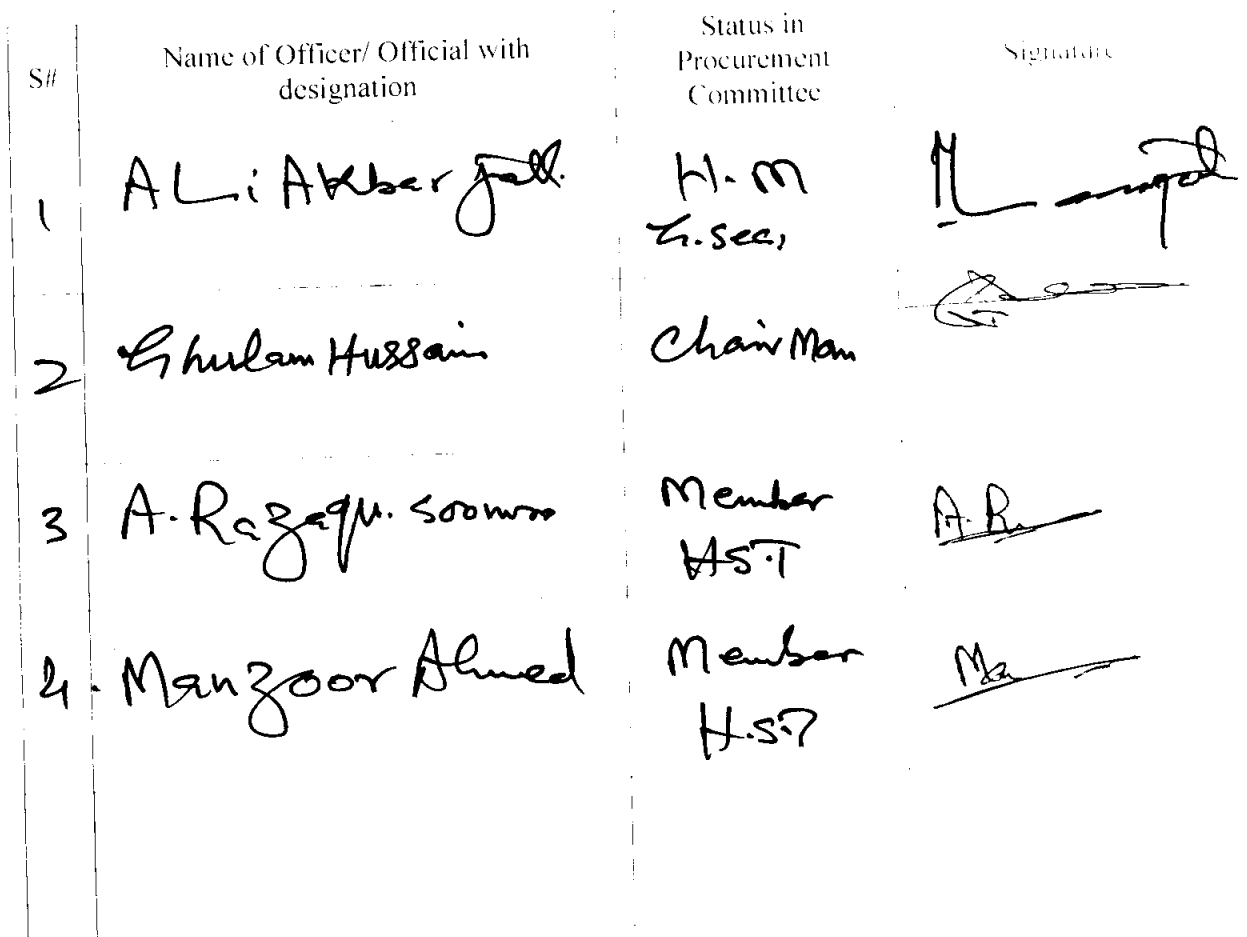 S# Name of Officer/ Official with designation Status in Procurement Committee Signature
1 ALi Akbar Jatt. H.M
G.Sec,
2 Ghulam Hussain Chair Man
3 A. Razaqu. Soomro Member
H.S.T A.R
4. Manzoor Ahmed Member
H.S.T Ma